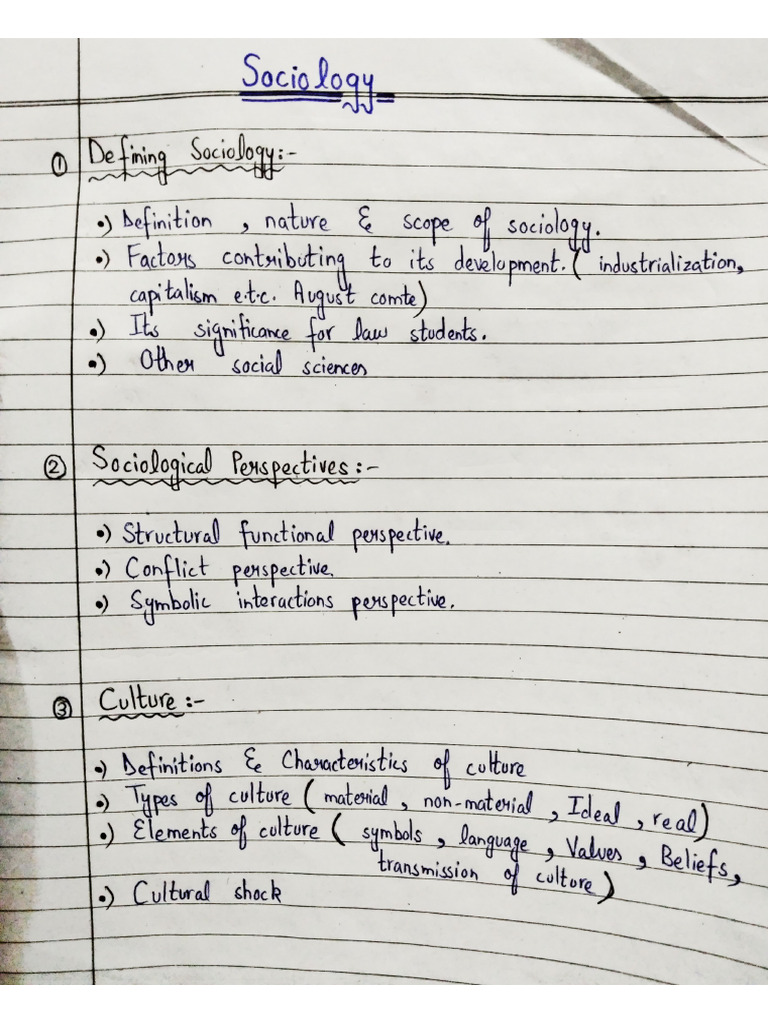 Sociology
① Defining Sociology:-
•) Definition , nature & scope of sociology.
•) Factors contributing to its development. ( industrialization,
capitalism e.t.c. August comte)
•) Its significance for law students.
•) Other social sciences
② Sociological Perspectives:-
•) Structural functional perspective.
•) Conflict perspective.
•) Symbolic interactions perspective.
③ Culture:-
•) Definitions & Characteristics of culture
•) Types of culture ( material , non-material , Ideal , real)
•) Elements of culture ( symbols , language , Values , Beliefs,
transmission of culture)
•) Cultural shock